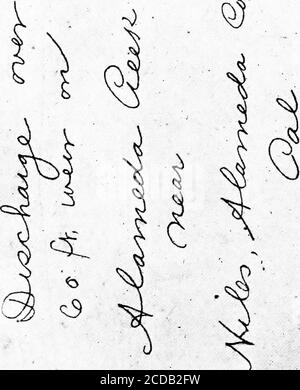 Discharge over
60 ft. weir on
Alameda Creek
near
Niles, Alameda Co
Cal
alamy
Image ID: 2CDB2FW
www.alamy.com